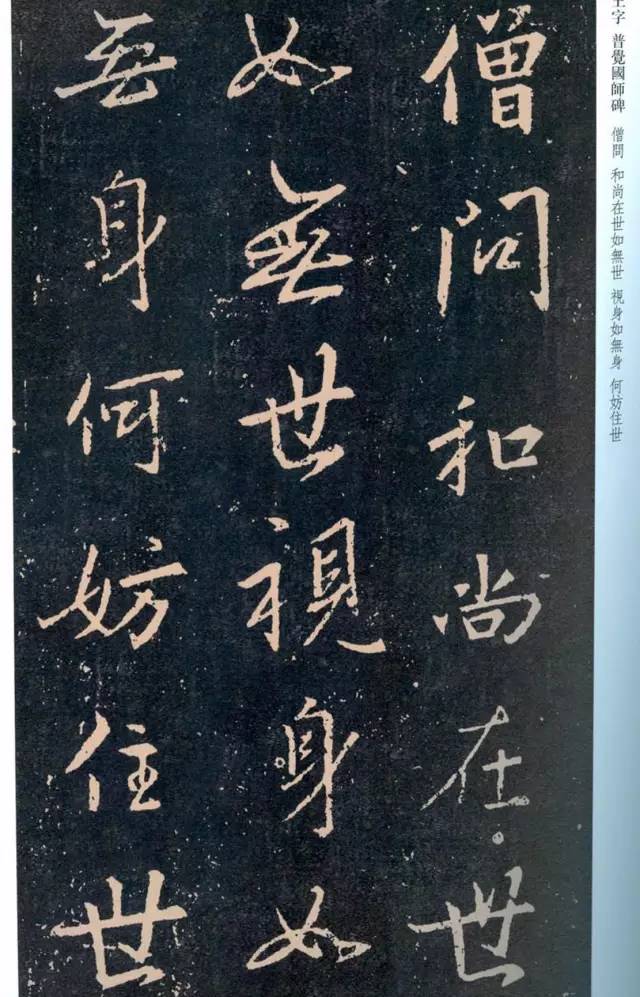 僧問和尚在世
如無世視身如
無身何妨住世
王字 普覺國師碑 僧問 和尚在世如無世 視身如無身 何妨住世